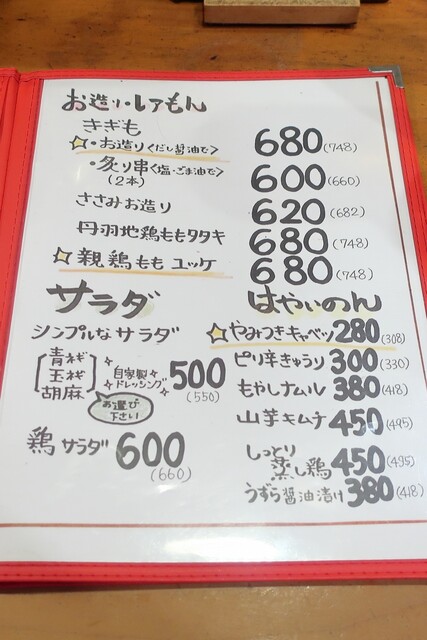 お造り・レアもん
きぎも
・お造り<だし醤油で> 680(748)
・炙り串<塩・ごま油で> 600(660)
(2本)
ささみお造り 620(682)
丹羽地鶏ももタタキ 680(748)
親鶏もも ユッケ 680(748)
サラダ
シンプルなサラダ
青ネギ
玉ネギ
胡麻
自家製
ドレッシング
500
(550)
お選び
下さい
鶏サラダ 600
(660)
はやいのん
やみつきキャベツ 280(308)
ピリ辛きゅうり 300(330)
もやしナムル 380(418)
山芋キムチ 450(495)
しっとり
蒸し鶏 450(495)
うずら醤油漬け 380(418)